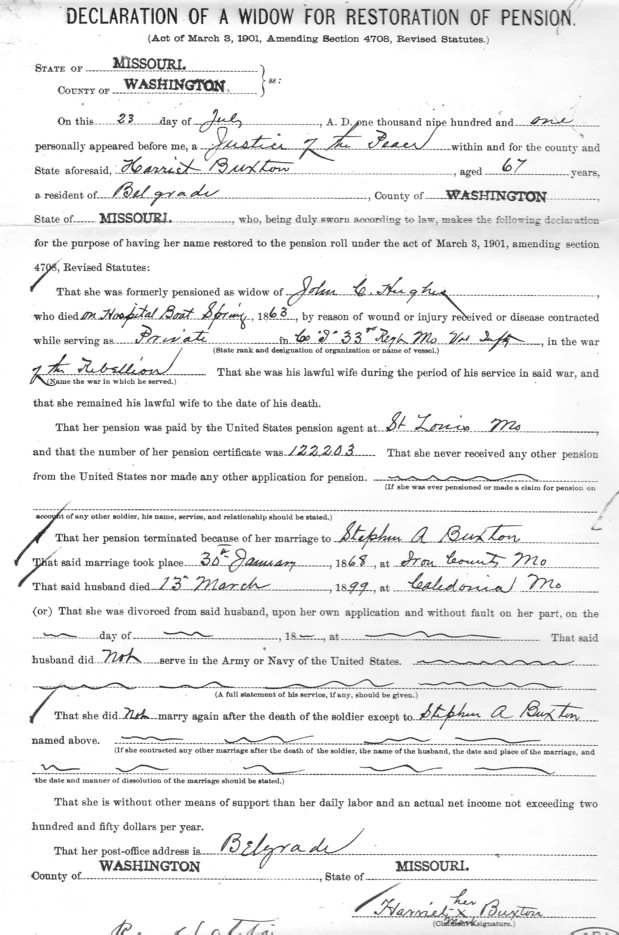 DECLARATION OF A WIDOW FOR RESTORATION OF PENSION.
(Act of March 3, 1901, Amending Section 4708, Revised Statutes.)
STATE OF MISSOURI.
COUNTY OF WASHINGTON, } ss:
On this 23 day of July, A. D. one thousand nine hundred and one
personally appeared before me, a Justice of the Peace within and for the county and
State aforesaid, Harriet Buxton, aged 67 years,
a resident of Belgrade, County of WASHINGTON
State of MISSOURI., who, being duly sworn according to law, makes the following declaration
for the purpose of having her name restored to the pension roll under the act of March 3, 1901, amending section
4708, Revised Statutes:
That she was formerly pensioned as widow of John C. Hughes,
who died on Hospital Boat Spring, 1863, by reason of wound or injury received or disease contracted
while serving as Private in Co "I" 33rd Regt Mo Vol Infy, in the war
(State rank and designation of organization or name of vessel.)
of the Rebellion That she was his lawful wife during the period of his service in said war, and
(Name the war in which he served.)
that she remained his lawful wife to the date of his death.
That her pension was paid by the United States pension agent at St Louis Mo,
and that the number of her pension certificate was 122203 That she never received any other pension
from the United States nor made any other application for pension.
(If she was ever pensioned or made a claim for pension on
account of any other soldier, his name, service, and relationship should be stated.)
That her pension terminated because of her marriage to Stephen A Buxton
That said marriage took place 30th January, 1868, at Iron County Mo
That said husband died 13th March, 1899, at Caledonia Mo
(or) That she was divorced from said husband, upon her own application and without fault on her part, on the
day of , 18 , at That said
husband did Not serve in the Army or Navy of the United States.
(A full statement of his service, if any, should be given.)
That she did Not marry again after the death of the soldier except to Stephen A Buxton
named above.
(If she contracted any other marriage after the death of the soldier, the name of the husband, the date and place of the marriage, and
the date and manner of dissolution of the marriage should be stated.)
That she is without other means of support than her daily labor and an actual net income not exceeding two
hundred and fifty dollars per year.
That her post-office address is Belgrade
County of WASHINGTON, State of MISSOURI.
her
Harriet x Buxton
mark
signature.)